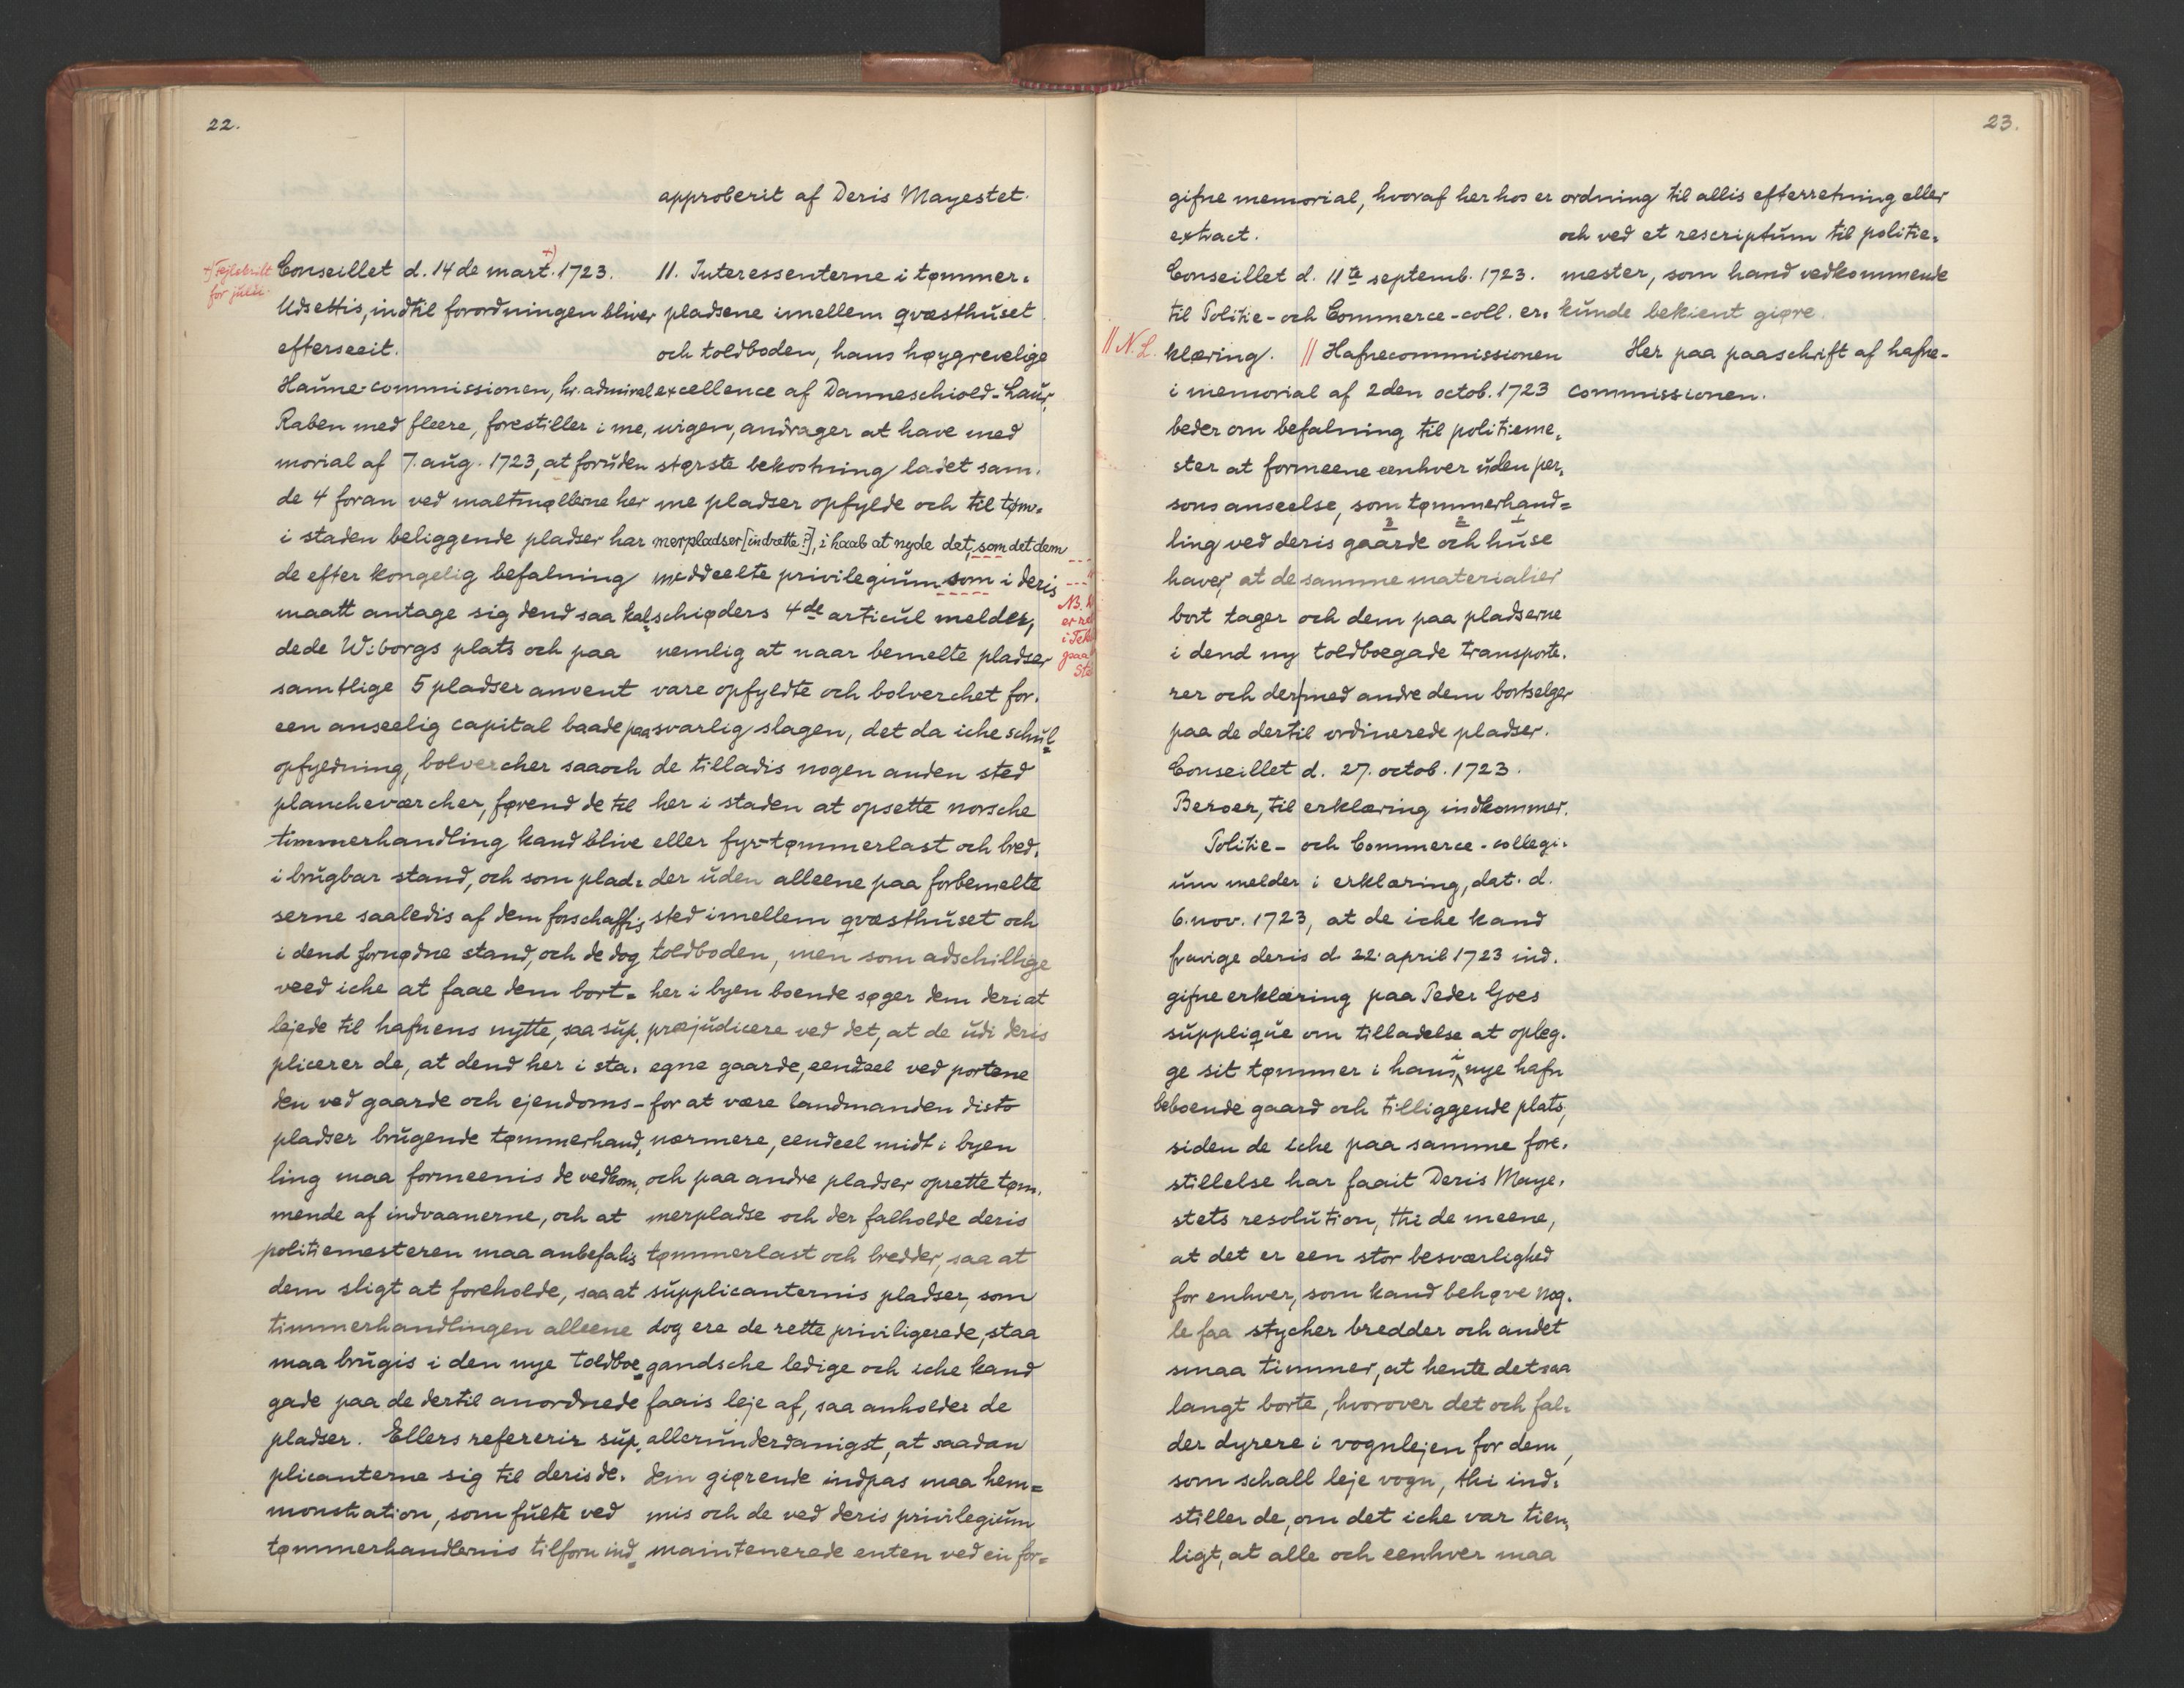 22.
approberit af Deris Mayestet.
+) Fejlskrift
for julii.
+)
Conseillet d. 14 de mart. 1723.
Udsettis, indtil forordningen bliver
efterseeit.
Haune-commissionen, hr. admiral
Raben med fleere, forestiller i me-
morial af 7. aug. 1723, at foruden
de 4 foran ved maltmøllerne her
i staden beliggende pladser har
de efter kongelig befalning
maatt antage sig dend saa kal-
dede Wiborgs plats och paa
samtlige 5 pladser anvent
een anseelig capital baade paa
opfyedning, bolvercher saaoch
plancheværcher, førend de til
timmerhandling kand blive
i brugbar stand, och som plad-
serne saaledis af dem forschaffis
i dend fornødne stand, och de dog
veed iche at faae dem bort-
lejede til hafnens nytte, saa sup-
plicerer de, at dend her i sta-
den ved gaarde och ejendoms-
pladser brugende tømmerhand-
ling maa formeenis de vedkom-
mende af indvaanerne, och at
politiemesteren maa anbefalis
dem sligt at foreholde, saa at
timmerhandlingen alleene
maa brugis i den nye toldboe-
gade paa de dertil anordnede
pladser. Ellers refererir sup-
plicanterne sig til deris de-
monstration, som fulte ved
tømmerhandlernis tilforn ind-
11. Interessenterne i tømmer-
pladsene imellem qvæsthuset
och toldboden, hans høygrevelige
excellence af Danneschiold-Laur-
wigen, andrager at have med
største bekostning ladet sam-
me pladser opfylde och til tøm-
merpladser [indrette?], i haab at nyde det, som det dem
meddeelte privilegium som i deris
schiøders 4de articul melder,
nemlig at naar bemelte pladser
vare opfyldte och bolverchet for-
svarlig slagen, det da iche schul-
de tilladis nogen anden sted
her i staden at opsette norsche
eller fyr-tømmerlast och bred-
der uden alleene paa forbemelte
sted imellem qvæsthuset och
toldboden, men som adschillige
her i byen boende søger dem deri at
præjudicere ved det, at de udi deris
egne gaarde, eendeel ved portene
for at være landmanden disto
nærmere, eendeel midt i byen
och paa andre pladser oprette tøm-
merpladse och der falholde deris
tømmerlast och bredder, saa at
supplicanternis pladser, som
dog ere de rette priviligerede, staa
gandsche ledige och iche kand
faais leje af, saa anholder de
allerunderdanigst, at saadan
dem giørende indpas maa hem-
mis och de ved deris privilegium
maintenerede enten ved en for-
NB.
23.
gifne memorial, hvoraf her hos er
extract.
Conseillet d. 11te septemb. 1723.
til Politie- och Commerce-coll. er-
|| N. L.
klæring. || Hafnecommissionen
i memorial af 2den octob. 1723
beder om befalning til politieme-
ster at formeene eenhver uden per-
sons anseelse, som tømmerhand-
3 2 1
ling ved deris gaarde och huse
haver, at de samme materialier
bort tager och dem paa pladserne
i dend ny toldboegade transporte-
rer och der med andre dem bortselger
paa de dertil ordinerede pladser.
Conseillet d. 27. octob. 1723.
Beroer, til erklæring indkommer.
Politie- och Commerce-collegi-
um melder i erklæring, dat. d.
6. nov. 1723, at de iche kand
fravige deris d. 22. april 1723 ind-
gifne erklæring paa Peder Goes
supplique om tilladelse at opleg-
ge sit tømmer i hans i nye hafn
beboende gaard och tilliggende plats,
siden de iche paa samme fore-
stillelse har faait Deris Maye-
stets resolution, thi de meene,
at det er een stor besværlighed
for enhver, som kand behøve nog-
le faa stycher bredder och andet
smaa timmer, at hente det saa
langt borte, hvorover det och fal-
der dyrere i vognlejen for dem,
som schall leje vogn, thi ind-
stiller de, om det iche var tien-
ligt, at alle och eenhver maa
ordning til allis efterretning eller
och ved et rescriptum til politie-
mester, som hand vedkommende
kunde bekient giøre.
Her paa paaschrift af hafne-
commissionen.